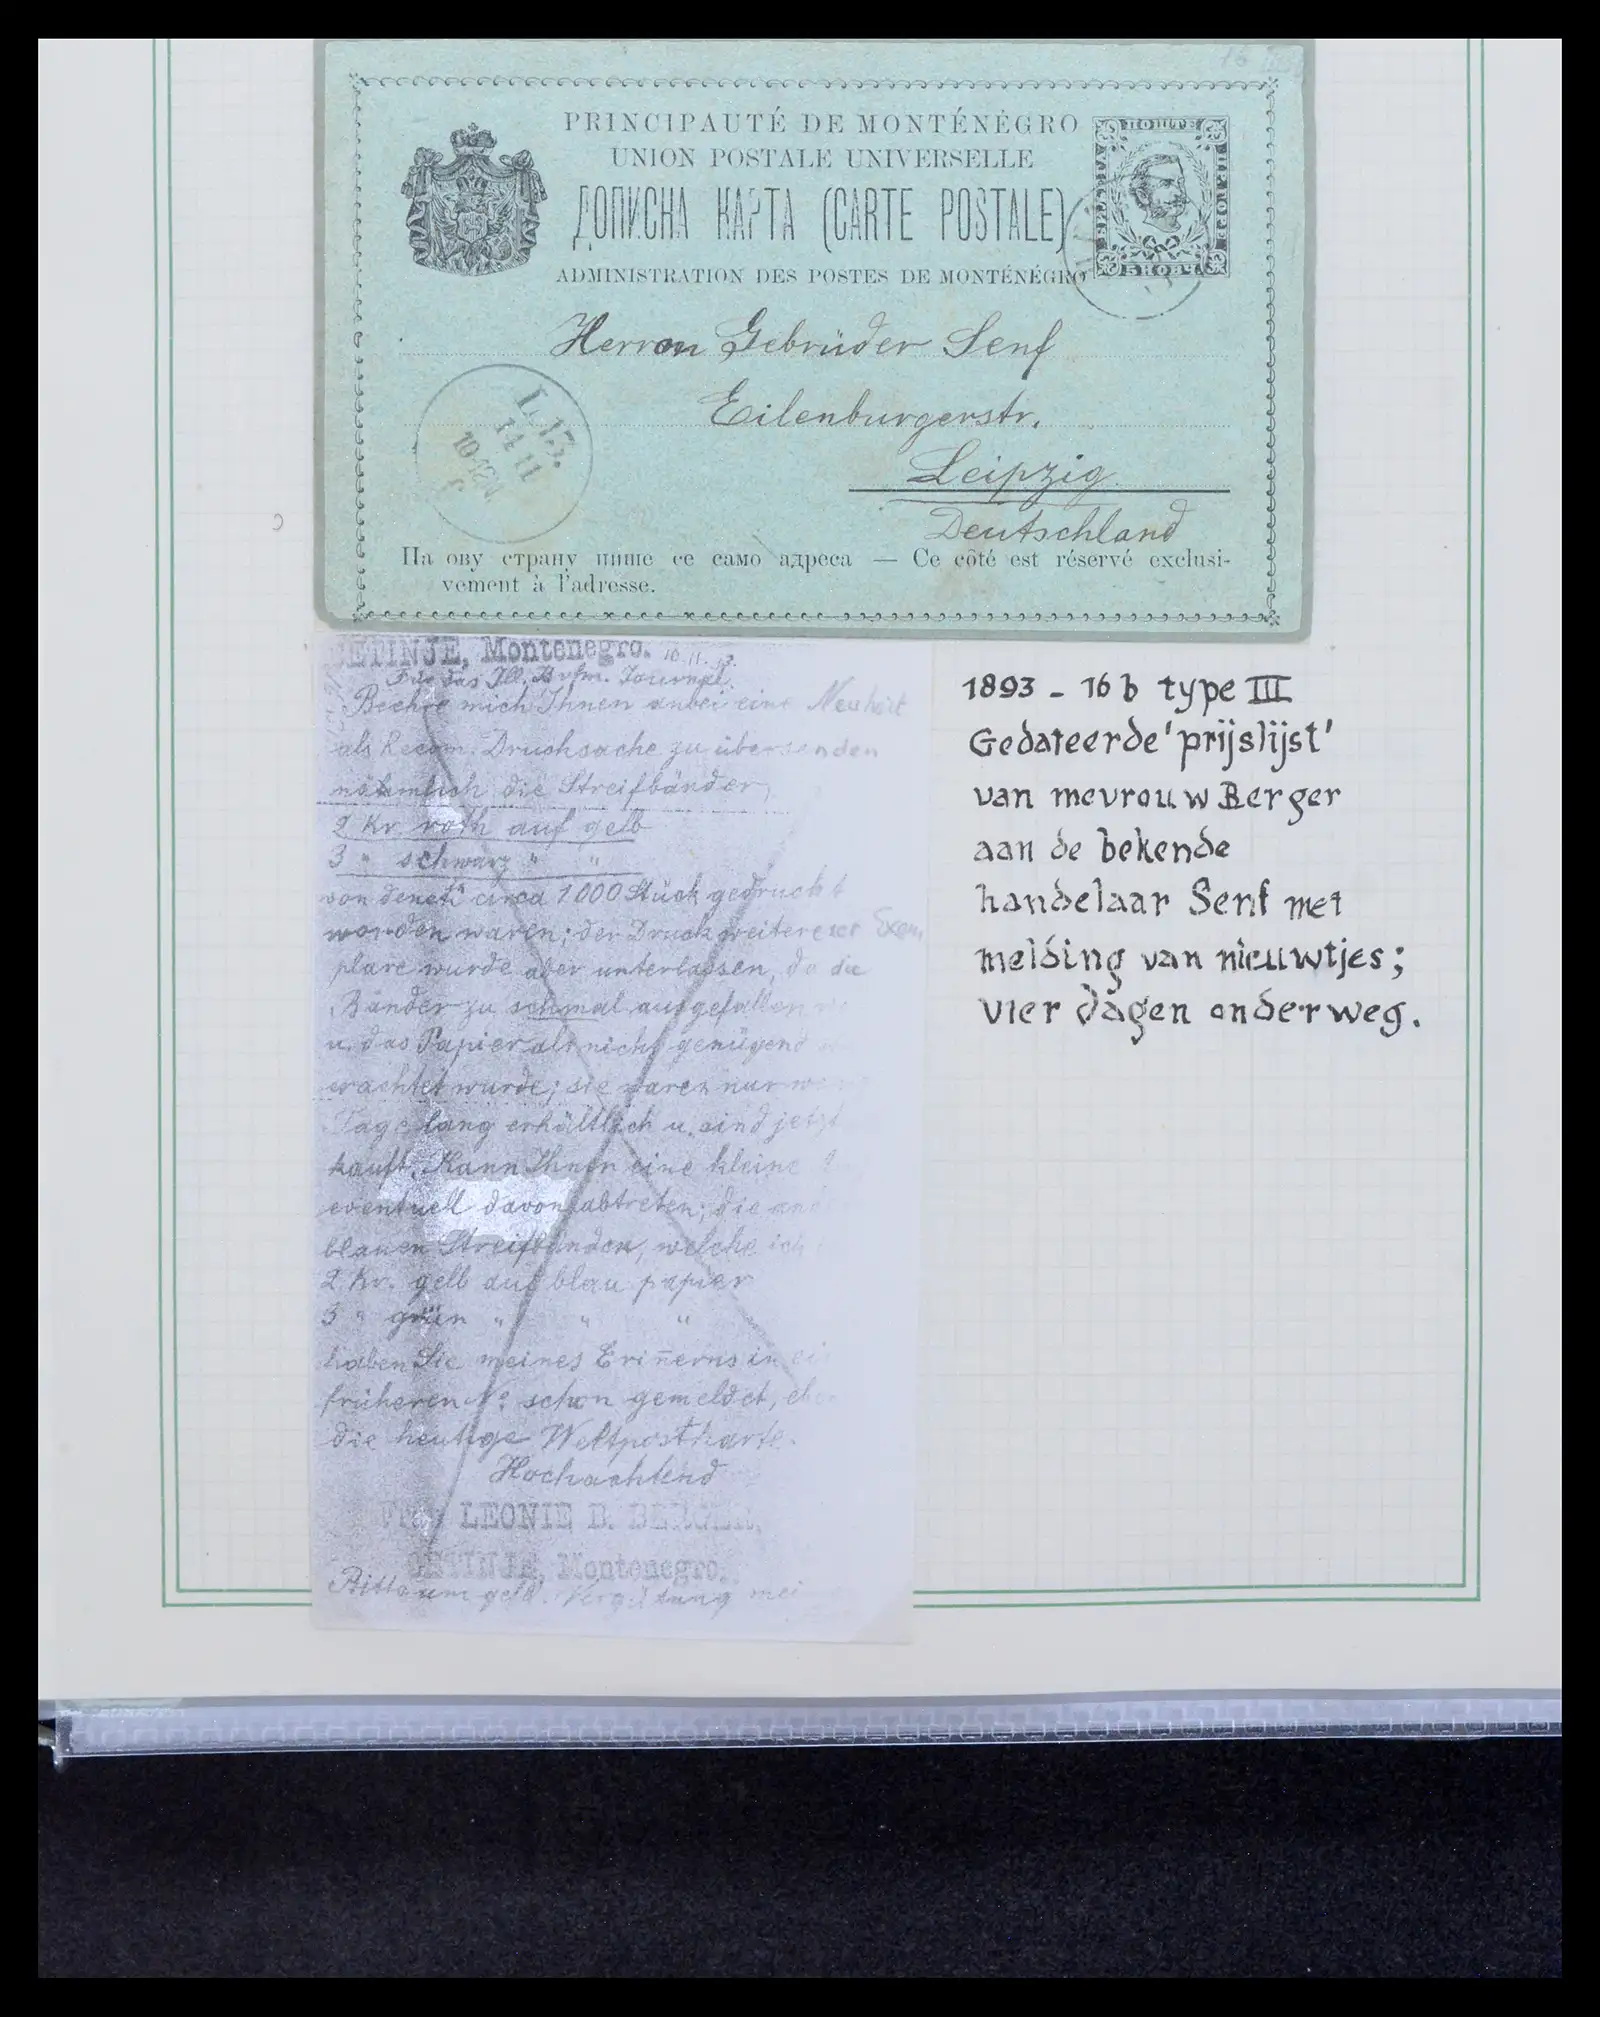 16
PRINCIPAUTÉ DE MONTÉNÉGRO
UNION POSTALE UNIVERSELLE
ДОПИСНА КАРТА (CARTE POSTALE)
ADMINISTRATION DES POSTES DE MONTÉNÉGRO
ПОШТЕ
5 НОВЧ
Herren Gebrüder Senf
Eilenburgerstr.
Leipzig
Deutschland
L. 13.
14 11
На ову страну пише се само адреса — Ce côté est réservé exclusi-
vement à l'adresse.
CETINJE, Montenegro. 10.11.93.
Für das Ill. Brfm. Journal.
Beehre mich Ihnen anbei eine Neuheit
als Recom. Drucksache zu übersenden
nähmlich die Streifbänder
2 Kr. roth auf gelb
3 " schwarz " "
von denen circa 1000 Stück gedruckt
worden waren; der Druck weiterer Exem
plare wurde aber unterlassen, da die
Bänder zu schmal ausgefallen
u. das Papier als nicht genügend
erachtet wurde; sie waren nur
Tage lang erhältlich u. sind jetzt
kauft. Kann Ihnen eine kleine
eventuell davon abtreten; die
blauen Streifbänder, welche ich
2 Kr. gelb auf blau papier
3 " grün " " "
haben Sie meines Eriñerns in
früheren No schon gemeldet,
die heutige Weltpostkarte.
Hochachtend
Frau LEONIE B. BERGER,
CETINJE, Montenegro.
Bitte um gefl. Vergütung
1893 - 16 b type III
Gedateerde 'prijslijst'
van mevrouw Berger
aan de bekende
handelaar Senf met
melding van nieuwtjes;
vier dagen onderweg.